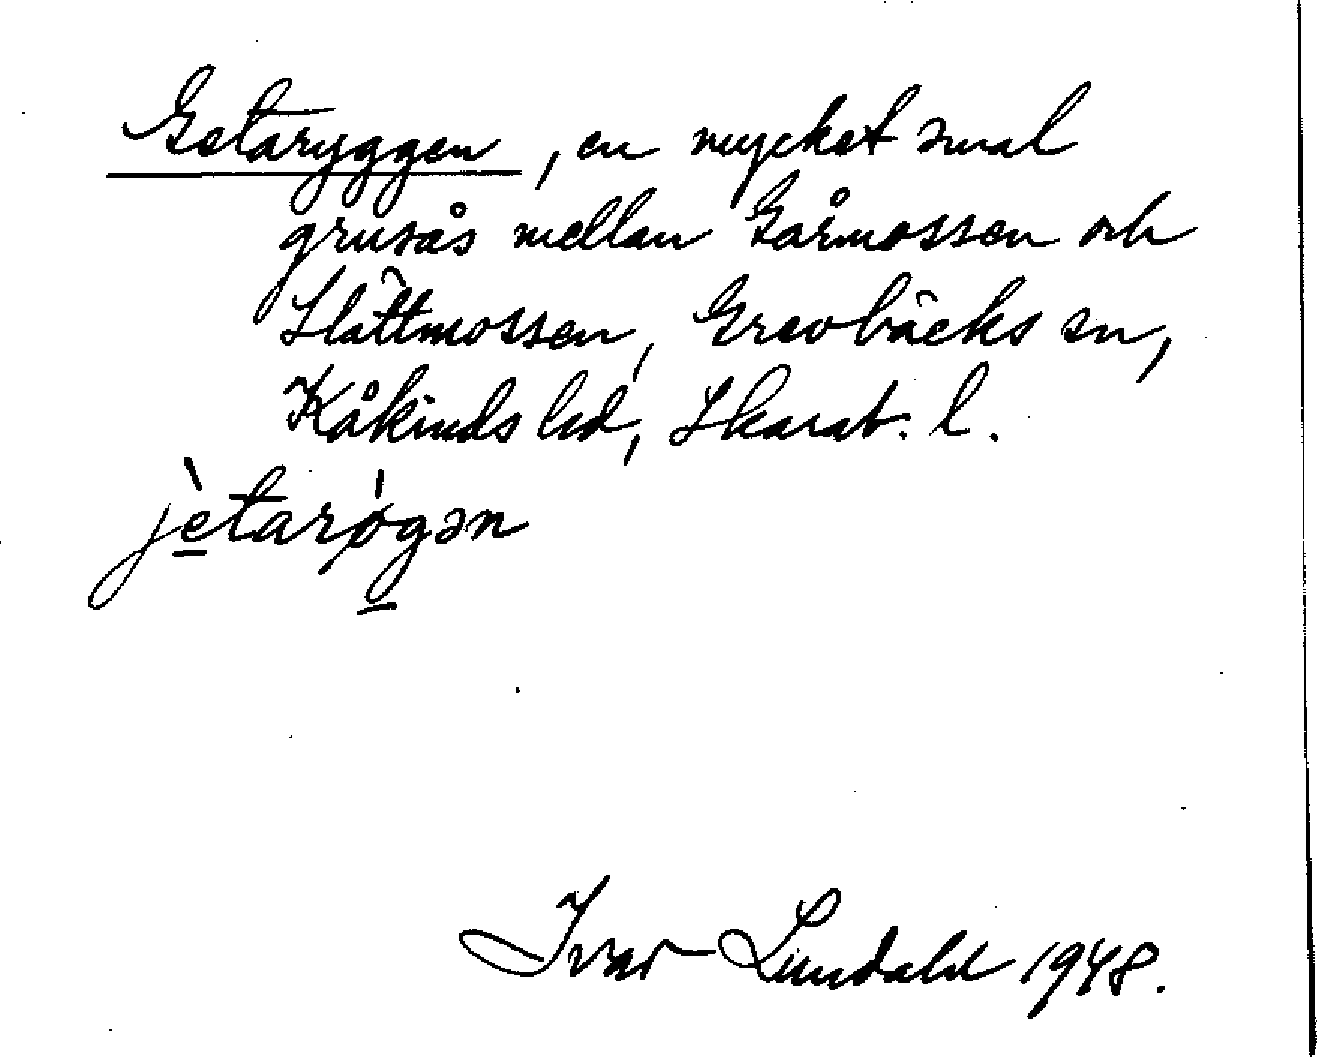 Getaryggen, en mycket smal
grusås mellan Gårmossen och
Slättmossen, Grevbäcks sn,
Kåkinds hd, Skarab. l.
jètarǿgən
Ivar Lundahl 1948.